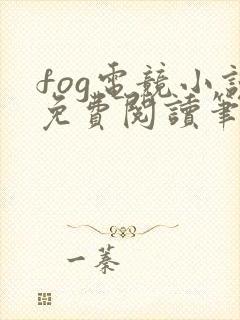 fog電競小說
免費閱讀筆
一蓁